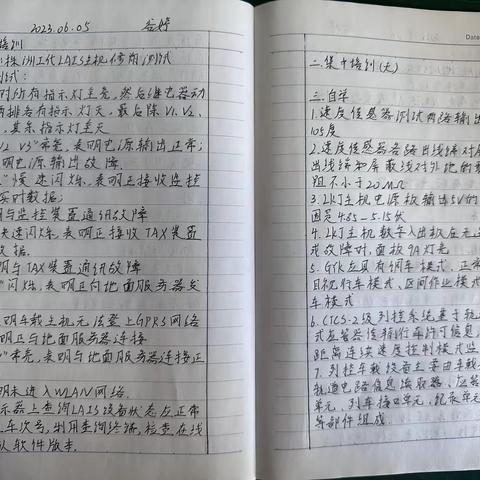 2023.06.05
培训
株洲工代LAIS主机修前测试
试:
时所有指示灯全亮,然后继电器动
两排各有指示灯灭,最后除V1、V2、
,其余指示灯全灭
V2 V3"常亮,表明电源输出正常;
明电源输出故障.
"慢速闪烁,表明正接收监控
实时数据;
明与监控装置通讯故障
快速闪烁,表明正接收TAX装置
数据.
明与TAX装置通讯故障
"闪烁,表明正向地面服务器发
明车载主机无法登上GPRS网络
明正与地面服务器连接
"常亮,表明与地面服务器连接正
明未进入WLAN网络.
示器上查询LAIS设备状态应正常
、车次号,利用查询终端,检查在线
从软件版本.
Date
二.集中培训(无)
三.自学
1.速度传感器测试两路输出
105度
2.速度传感器各路出线端对屏
出线端和屏蔽线对外地的
阻不小于20MΩ
3.LKJ主机电源板输出5V的
围是4.85-5.15伏
4.LKJ主机数字入出板
或故障时,面板9A灯亮
5.GYK应具有调车模式、正常
目视行车模式、区间作业模式
车模式
6.CTCS-2级列控系统基于轨
式应答器传输行车许可信息,
距离连续速度控制模式监
7.列控车载设备主要由车载
轨道电路信息读取器、应答
单元、列车接口单元、记录单元
等部件组成.